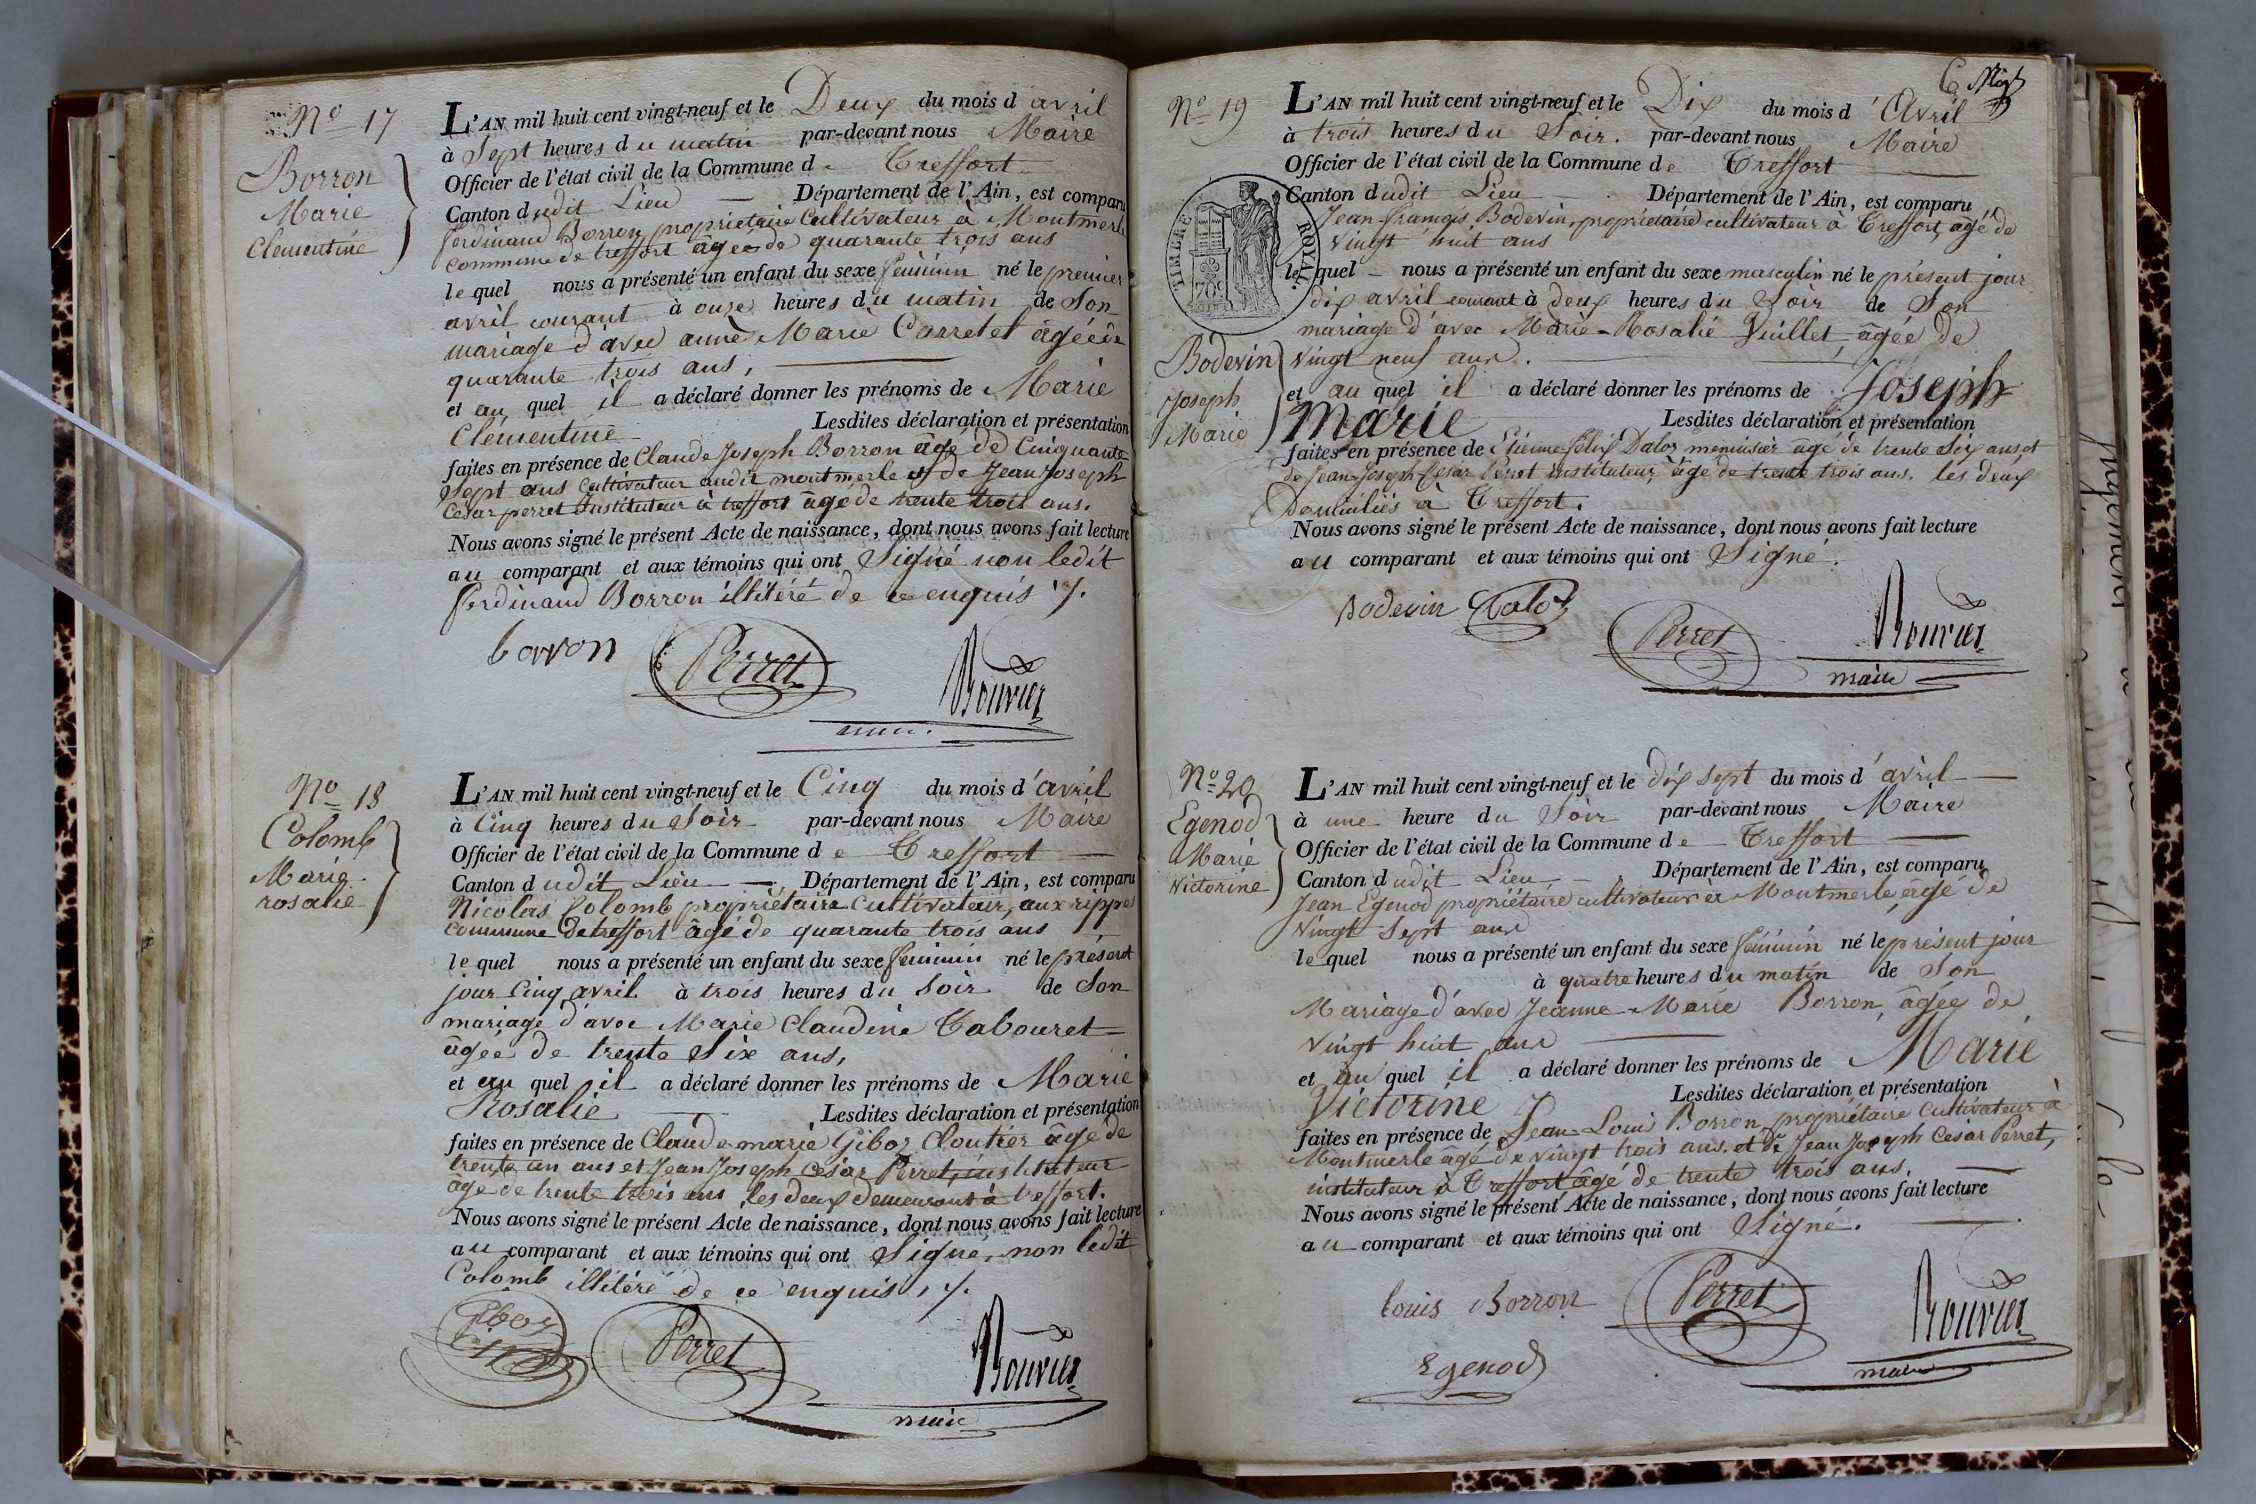 N.o 17
Borron
Marie
Clementine
L'AN mil huit cent vingt-neuf et le Deux du mois d'avril
à Sept heures du matin par-devant nous Maire
Officier de l'état civil de la Commune de Treffort
Canton dudit Lieu Département de l'Ain, est comparu
ferdinand Borron propriétaire Cultivateur à Montmerle
commune de treffort âgée de quarante trois ans
lequel nous a présenté un enfant du sexe féminin né le premier
avril courant à onze heures du matin de Son
mariage d'avec anne Marie Carretel âgée de
quarante trois ans,
et au quel il a déclaré donner les prénoms de Marie
Clémentine Lesdites déclaration et présentation
faites en présence de Claude Joseph Borron âgé de Cinquante
Sept ans Cultivateur audit montmerle et de Jean Joseph
Cesar perret Instituteur à treffort âgé de trente trois ans.
Nous avons signé le présent Acte de naissance, dont nous avons fait lecture
au comparant et aux témoins qui ont Signé non ledit
ferdinand Borron illitéré de ce enquis ./.
borron Perret Bouvier
N.o 18
Colomb
Marie
rosalie
L'AN mil huit cent vingt-neuf et le Cinq du mois d'avril
à Cinq heures du Soir par-devant nous Maire
Officier de l'état civil de la Commune de Treffort
Canton dudit Lieu Département de l'Ain, est comparu
Nicolas Colomb propriétaire Cultivateur, aux rippes
commune de treffort âgé de quarante trois ans
lequel nous a présenté un enfant du sexe féminin né le présent
jour Cinq avril à trois heures du Soir de Son
mariage d'avec Marie Claudine Tabouret
âgée de trente Six ans,
et au quel il a déclaré donner les prénoms de Marie
Rosalie Lesdites déclaration et présentation
faites en présence de Claude marie Giboz Cloutier âgé de
trente un ans et Jean Joseph César Perret, instituteur
âgé de trente trois ans, les deux demeurant à treffort.
Nous avons signé le présent Acte de naissance, dont nous avons fait lecture
au comparant et aux témoins qui ont Signé, non ledit
Colomb illitéré de ce enquis, ./.
Giboz Perret Bouvier
maire
6
N.o 19
TIMBRE ROYAL
70c
Bodevin
Joseph
Marie
L'AN mil huit cent vingt-neuf et le Dix du mois d'Avril
à trois heures du Soir. par-devant nous Maire
Officier de l'état civil de la Commune de Treffort
Canton dudit Lieu Département de l'Ain, est comparu
Jean-françois Bodevin, propriétaire cultivateur à Treffort, âgé de
vingt huit ans
lequel nous a présenté un enfant du sexe masculin né le présent jour
dix avril courant à deux heures du Soir de Son
mariage d'avec Marie-Rosalie Vuillet, âgée de
vingt neuf ans.
et au quel il a déclaré donner les prénoms de Joseph
Marie Lesdites déclaration et présentation
faites en présence de Etienne félix Daloz menuisier âgé de trente Six ans et
de Jean-Joseph César Perret instituteur, âgé de trente trois ans. les deux
Domiciliés à Treffort.
Nous avons signé le présent Acte de naissance, dont nous avons fait lecture
au comparant et aux témoins qui ont Signé.
Bodevin Daloz Perret Bouvier
maire
N.o 20
Egenod
Marie
Victorine
L'AN mil huit cent vingt-neuf et le dix sept du mois d'avril
à une heure du Soir par-devant nous Maire
Officier de l'état civil de la Commune de Treffort
Canton dudit Lieu Département de l'Ain, est comparu
Jean Egenod propriétaire cultivateur à Montmerle, âgé de
Vingt Sept ans
lequel nous a présenté un enfant du sexe féminin né le présent jour
à quatre heures du matin de Son
Mariage d'avec Jeanne-Marie Borron, âgée de
vingt huit ans
et au quel il a déclaré donner les prénoms de Marie
Victorine Lesdites déclaration et présentation
faites en présence de Jean-Louis Borron propriétaire Cultivateur à
Montmerle âgé de vingt trois ans. et de Jean Joseph César Perret,
instituteur à Treffort âgé de trente trois ans.
Nous avons signé le présent Acte de naissance, dont nous avons fait lecture
au comparant et aux témoins qui ont Signé.
louis Borron Perret Bouvier
maire
Egenod